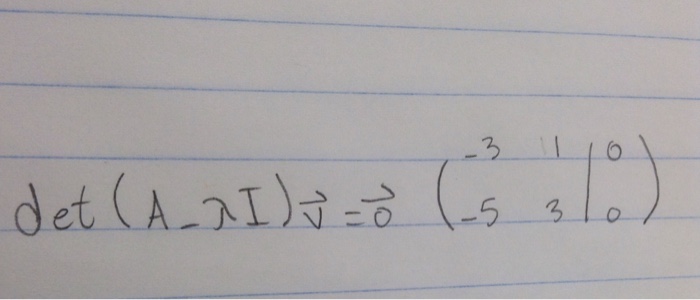 det(A-λI)v⃗=0⃗ (-3 1 | 0
-5 3 | 0)